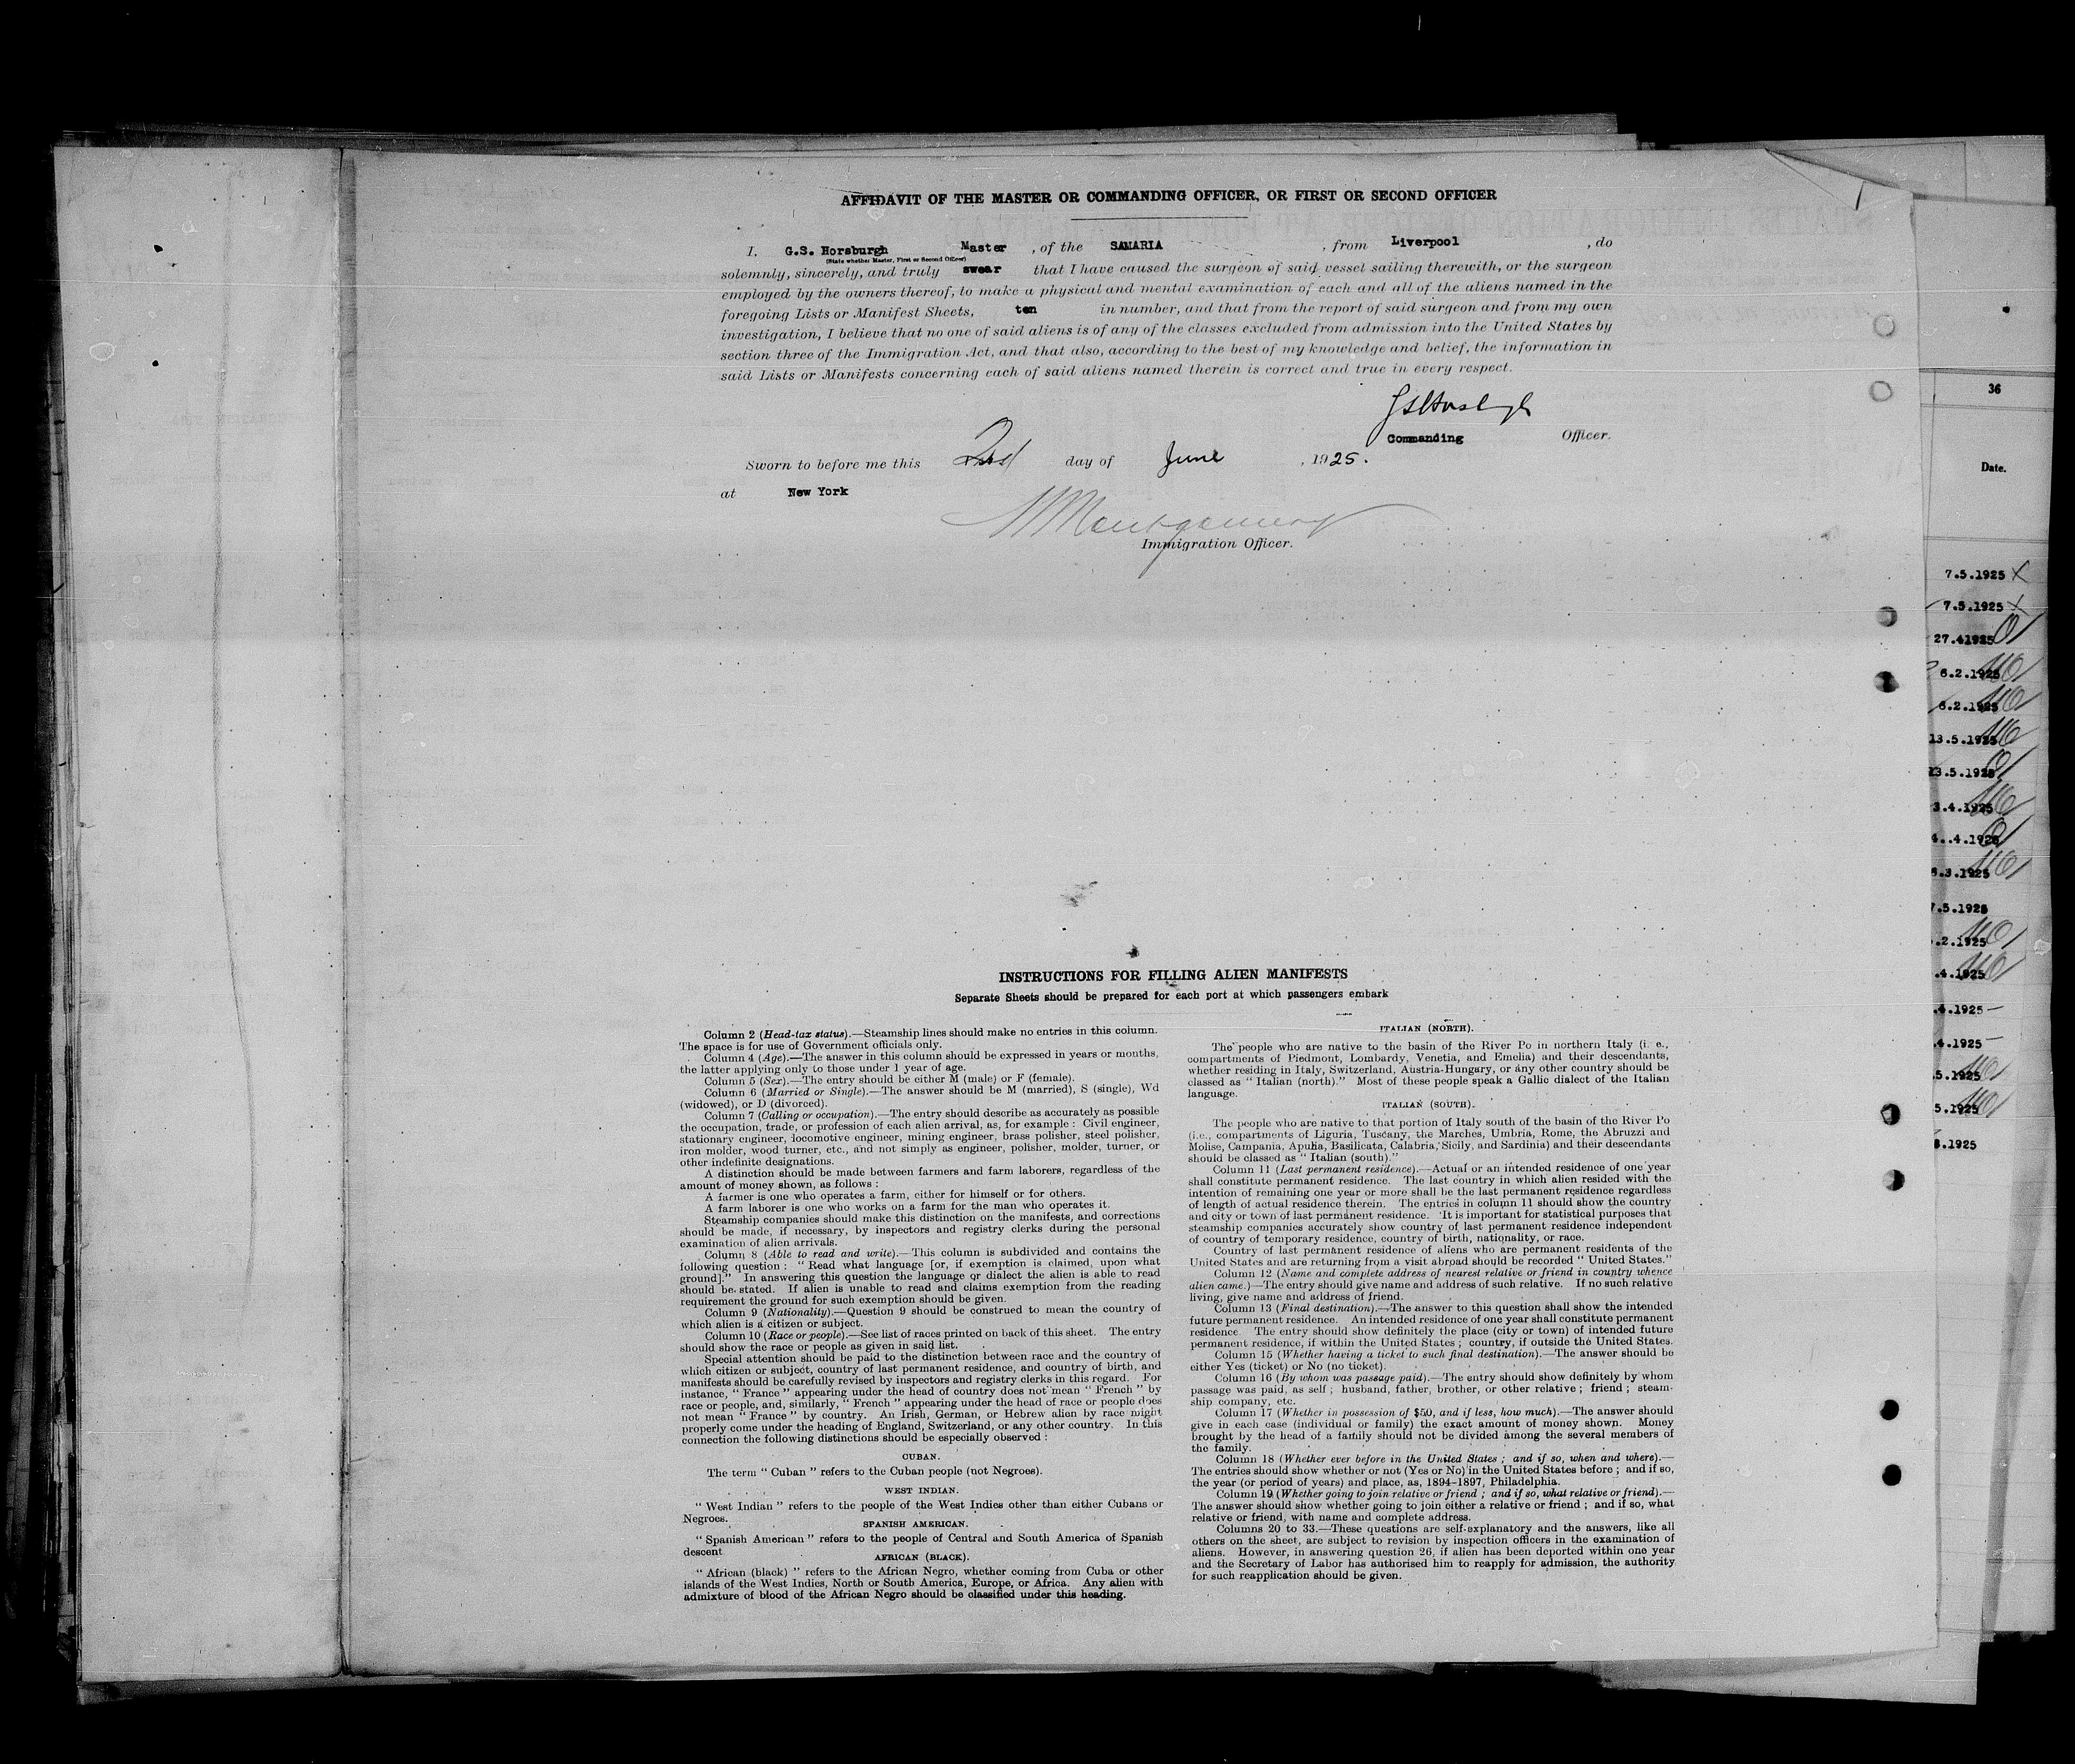 AFFIDAVIT OF THE MASTER OR COMMANDING OFFICER, OR FIRST OR SECOND OFFICER
I, G.S. Horsburgh Master , of the SAMARIA , from Liverpool , do
(State whether Master, First or Second Officer)
solemnly, sincerely, and truly swear that I have caused the surgeon of said vessel sailing therewith, or the surgeon
employed by the owners thereof, to make a physical and mental examination of each and all of the aliens named in the
foregoing Lists or Manifest Sheets, ten in number, and that from the report of said surgeon and from my own
investigation, I believe that no one of said aliens is of any of the classes excluded from admission into the United States by
section three of the Immigration Act, and that also, according to the best of my knowledge and belief, the information in
said Lists or Manifests concerning each of said aliens named therein is correct and true in every respect.
Commanding Officer.
Sworn to before me this day of June , 1925.
at New York
Montgomery
Immigration Officer.
INSTRUCTIONS FOR FILLING ALIEN MANIFESTS
Separate Sheets should be prepared for each port at which passengers embark
Column 2 (Head-tax status).—Steamship lines should make no entries in this column.
The space is for use of Government officials only.
Column 4 (Age).—The answer in this column should be expressed in years or months,
the latter applying only to those under 1 year of age.
Column 5 (Sex).—The entry should be either M (male) or F (female).
Column 6 (Married or Single).—The answer should be M (married), S (single), Wd
(widowed), or D (divorced).
Column 7 (Calling or occupation).—The entry should describe as accurately as possible
the occupation, trade, or profession of each alien arrival, as, for example : Civil engineer,
stationary engineer, locomotive engineer, mining engineer, brass polisher, steel polisher,
iron molder, wood turner, etc., and not simply as engineer, polisher, molder, turner, or
other indefinite designations.
A distinction should be made between farmers and farm laborers, regardless of the
amount of money shown, as follows :
A farmer is one who operates a farm, either for himself or for others.
A farm laborer is one who works on a farm for the man who operates it.
Steamship companies should make this distinction on the manifests, and corrections
should be made, if necessary, by inspectors and registry clerks during the personal
examination of alien arrivals.
Column 8 (Able to read and write).—This column is subdivided and contains the
following question : " Read what language [or, if exemption is claimed, upon what
ground]." In answering this question the language or dialect the alien is able to read
should be stated. If alien is unable to read and claims exemption from the reading
requirement the ground for such exemption should be given.
Column 9 (Nationality).—Question 9 should be construed to mean the country of
which alien is a citizen or subject.
Column 10 (Race or people).—See list of races printed on back of this sheet. The entry
should show the race or people as given in said list.
Special attention should be paid to the distinction between race and the country of
which citizen or subject, country of last permanent residence, and country of birth, and
manifests should be carefully revised by inspectors and registry clerks in this regard. For
instance, " France " appearing under the head of country does not mean " French " by
race or people, and, similarly, " French " appearing under the head of race or people does
not mean " France " by country. An Irish, German, or Hebrew alien by race might
properly come under the heading of England, Switzerland, or any other country. In this
connection the following distinctions should be especially observed :
CUBAN.
The term " Cuban " refers to the Cuban people (not Negroes).
WEST INDIAN.
" West Indian " refers to the people of the West Indies other than either Cubans or
Negroes.
SPANISH AMERICAN.
" Spanish American " refers to the people of Central and South America of Spanish
descent
AFRICAN (BLACK).
" African (black) " refers to the African Negro, whether coming from Cuba or other
islands of the West Indies, North or South America, Europe, or Africa. Any alien with
admixture of blood of the African Negro should be classified under this heading.
ITALIAN (NORTH).
The people who are native to the basin of the River Po in northern Italy (i. e.,
compartments of Piedmont, Lombardy, Venetia, and Emelia) and their descendants,
whether residing in Italy, Switzerland, Austria-Hungary, or any other country should be
classed as " Italian (north)." Most of these people speak a Gallic dialect of the Italian
language.
ITALIAN (SOUTH).
The people who are native to that portion of Italy south of the basin of the River Po
(i.e., compartments of Liguria, Tuscany, the Marches, Umbria, Rome, the Abruzzi and
Molise, Campania, Apulia, Basilicata, Calabria, Sicily, and Sardinia) and their descendants
should be classed as " Italian (south)."
Column 11 (Last permanent residence).—Actual or an intended residence of one year
shall constitute permanent residence. The last country in which alien resided with the
intention of remaining one year or more shall be the last permanent residence regardless
of length of actual residence therein. The entries in column 11 should show the country
and city or town of last permanent residence. It is important for statistical purposes that
steamship companies accurately show country of last permanent residence independent
of country of temporary residence, country of birth, nationality, or race.
Country of last permanent residence of aliens who are permanent residents of the
United States and are returning from a visit abroad should be recorded " United States."
Column 12 (Name and complete address of nearest relative or friend in country whence
alien came.)—The entry should give name and address of such relative. If no such relative
living, give name and address of friend.
Column 13 (Final destination).—The answer to this question shall show the intended
future permanent residence. An intended residence of one year shall constitute permanent
residence. The entry should show definitely the place (city or town) of intended future
permanent residence, if within the United States ; country, if outside the United States.
Column 15 (Whether having a ticket to such final destination).—The answer should be
either Yes (ticket) or No (no ticket).
Column 16 (By whom was passage paid).—The entry should show definitely by whom
passage was paid, as self ; husband, father, brother, or other relative ; friend ; steam-
ship company, etc.
Column 17 (Whether in possession of $50, and if less, how much).—The answer should
give in each case (individual or family) the exact amount of money shown. Money
brought by the head of a family should not be divided among the several members of
the family.
Column 18 (Whether ever before in the United States ; and if so, when and where).—
The entries should show whether or not (Yes or No) in the United States before ; and if so,
the year (or period of years) and place, as, 1894–1897, Philadelphia.
Column 19 (Whether going to join relative or friend ; and if so, what relative or friend).—
The answer should show whether going to join either a relative or friend ; and if so, what
relative or friend, with name and complete address.
Columns 20 to 33.—These questions are self-explanatory and the answers, like all
others on the sheet, are subject to revision by inspection officers in the examination of
aliens. However, in answering question 26, if alien has been deported within one year
and the Secretary of Labor has authorised him to reapply for admission, the authority
for such reapplication should be given.
36
Date.
7.5.1925
7.5.1925
27.41925
6.2.1925
6.2.1925
13.5.1925
13.5.1925
3.4.1925
4..4.1925
3.1925
7.5.1925
.2.1925
.4.1925
.4.1925
.4.1925
.5.1925
5.1925
.1925